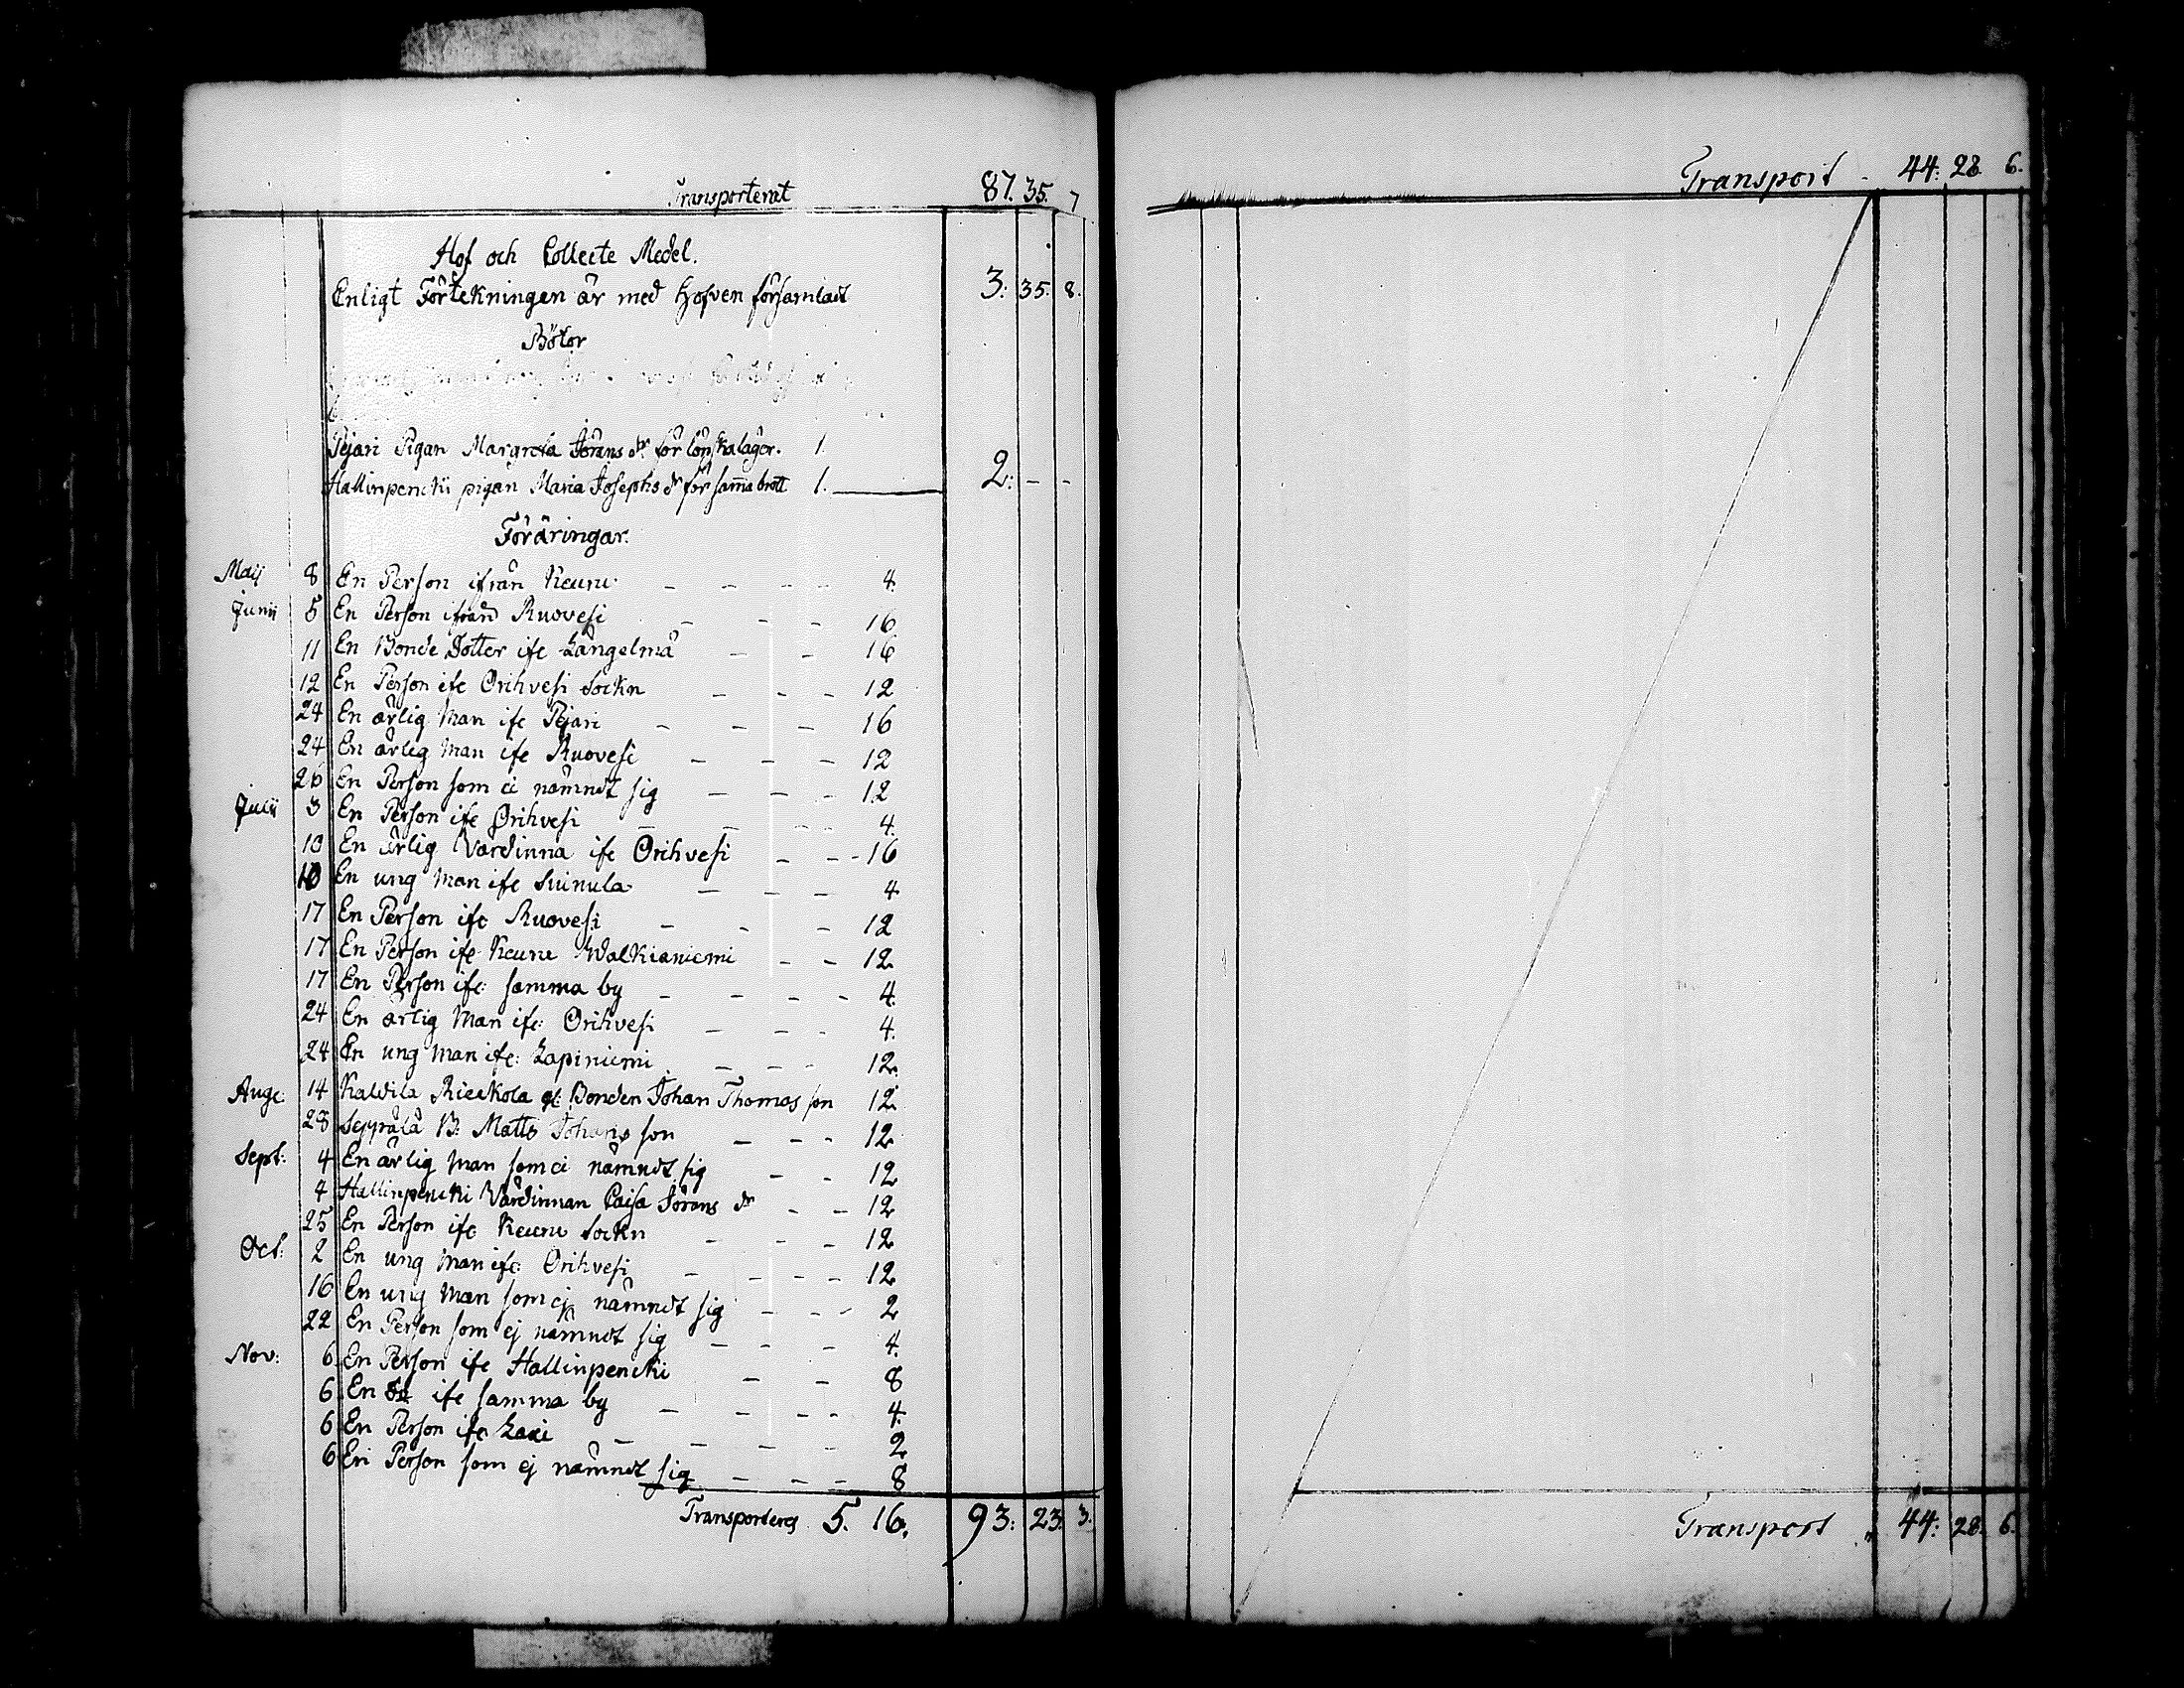 Transporterat 87. 35. 7
Hof och Collecte Medel.
Enligt Förtekningen är med Hofven församladt 3: 35. 8.
Böter
Pejari Pigan Margreta Jörans dr för lönskaläger. 1.
Hallinpenckii pigan Maria Josephs dr för samma brott 1. 2: - -
Föräringar.
Maij 8 En Person ifrån Keuru - - - - 4.
Junii 5 En Person ifrån Ruovesi - - - 16
11 En Bonde Dotter ifr Längelmä - - 16
12 En Person ifr Orihvesi Sockn - - - 12
24 En ärlig Man ifr Pejari - - - 16
24 En ärlig Man ifr Ruovesi - - - 12
26 En Person som ei nämndt sig - - - 12
Julii 3 En Person ifr Orihvesi - - - - 4.
10 En ärlig Värdinna ifr Orihvesi - - - 16
10 En ung Man ifr Suinula - - - 4
17 En Person ifr Ruovesi - - - 12
17 En Person ifr Keuru Walkianiemi - - 12
17 En Person ifr: samma by - - - - 4.
24 En ärlig Man ifr: Orihvesi - - - 4.
24 En ung Man ifr: Lapiniemi - - - 12.
Aug: 14 Kaldila Rieckola gl: Bonden Johan Thomas son 12
28 Seppälä B: Matts Johans son - - - 12
Sept: 4 En ärlig Man som ei nämndt sig - - 12
4 Hallinpencki Värdinnan Caisa Jörans dr - - 12
25 En Person ifr Keuru Sockn - - - 12
Oct: 2 En ung Man ifr: Orihvesi - - - - 12
16 En ung Man som ej nämndt sig - - - 2
22 En Person som ej nämndt sig - - - 4.
Nov: 6 En Person ifr Hallinpencki - - 8
6 En ifr samma by - - - - 4.
6 En Person ifr - - - - 2
6 En Person som ej nämndt sig - - - 8
Transporteres 5. 16. 93: 23: 3.
Transport - 44: 28. 6.
Transport 44: 28. 6.